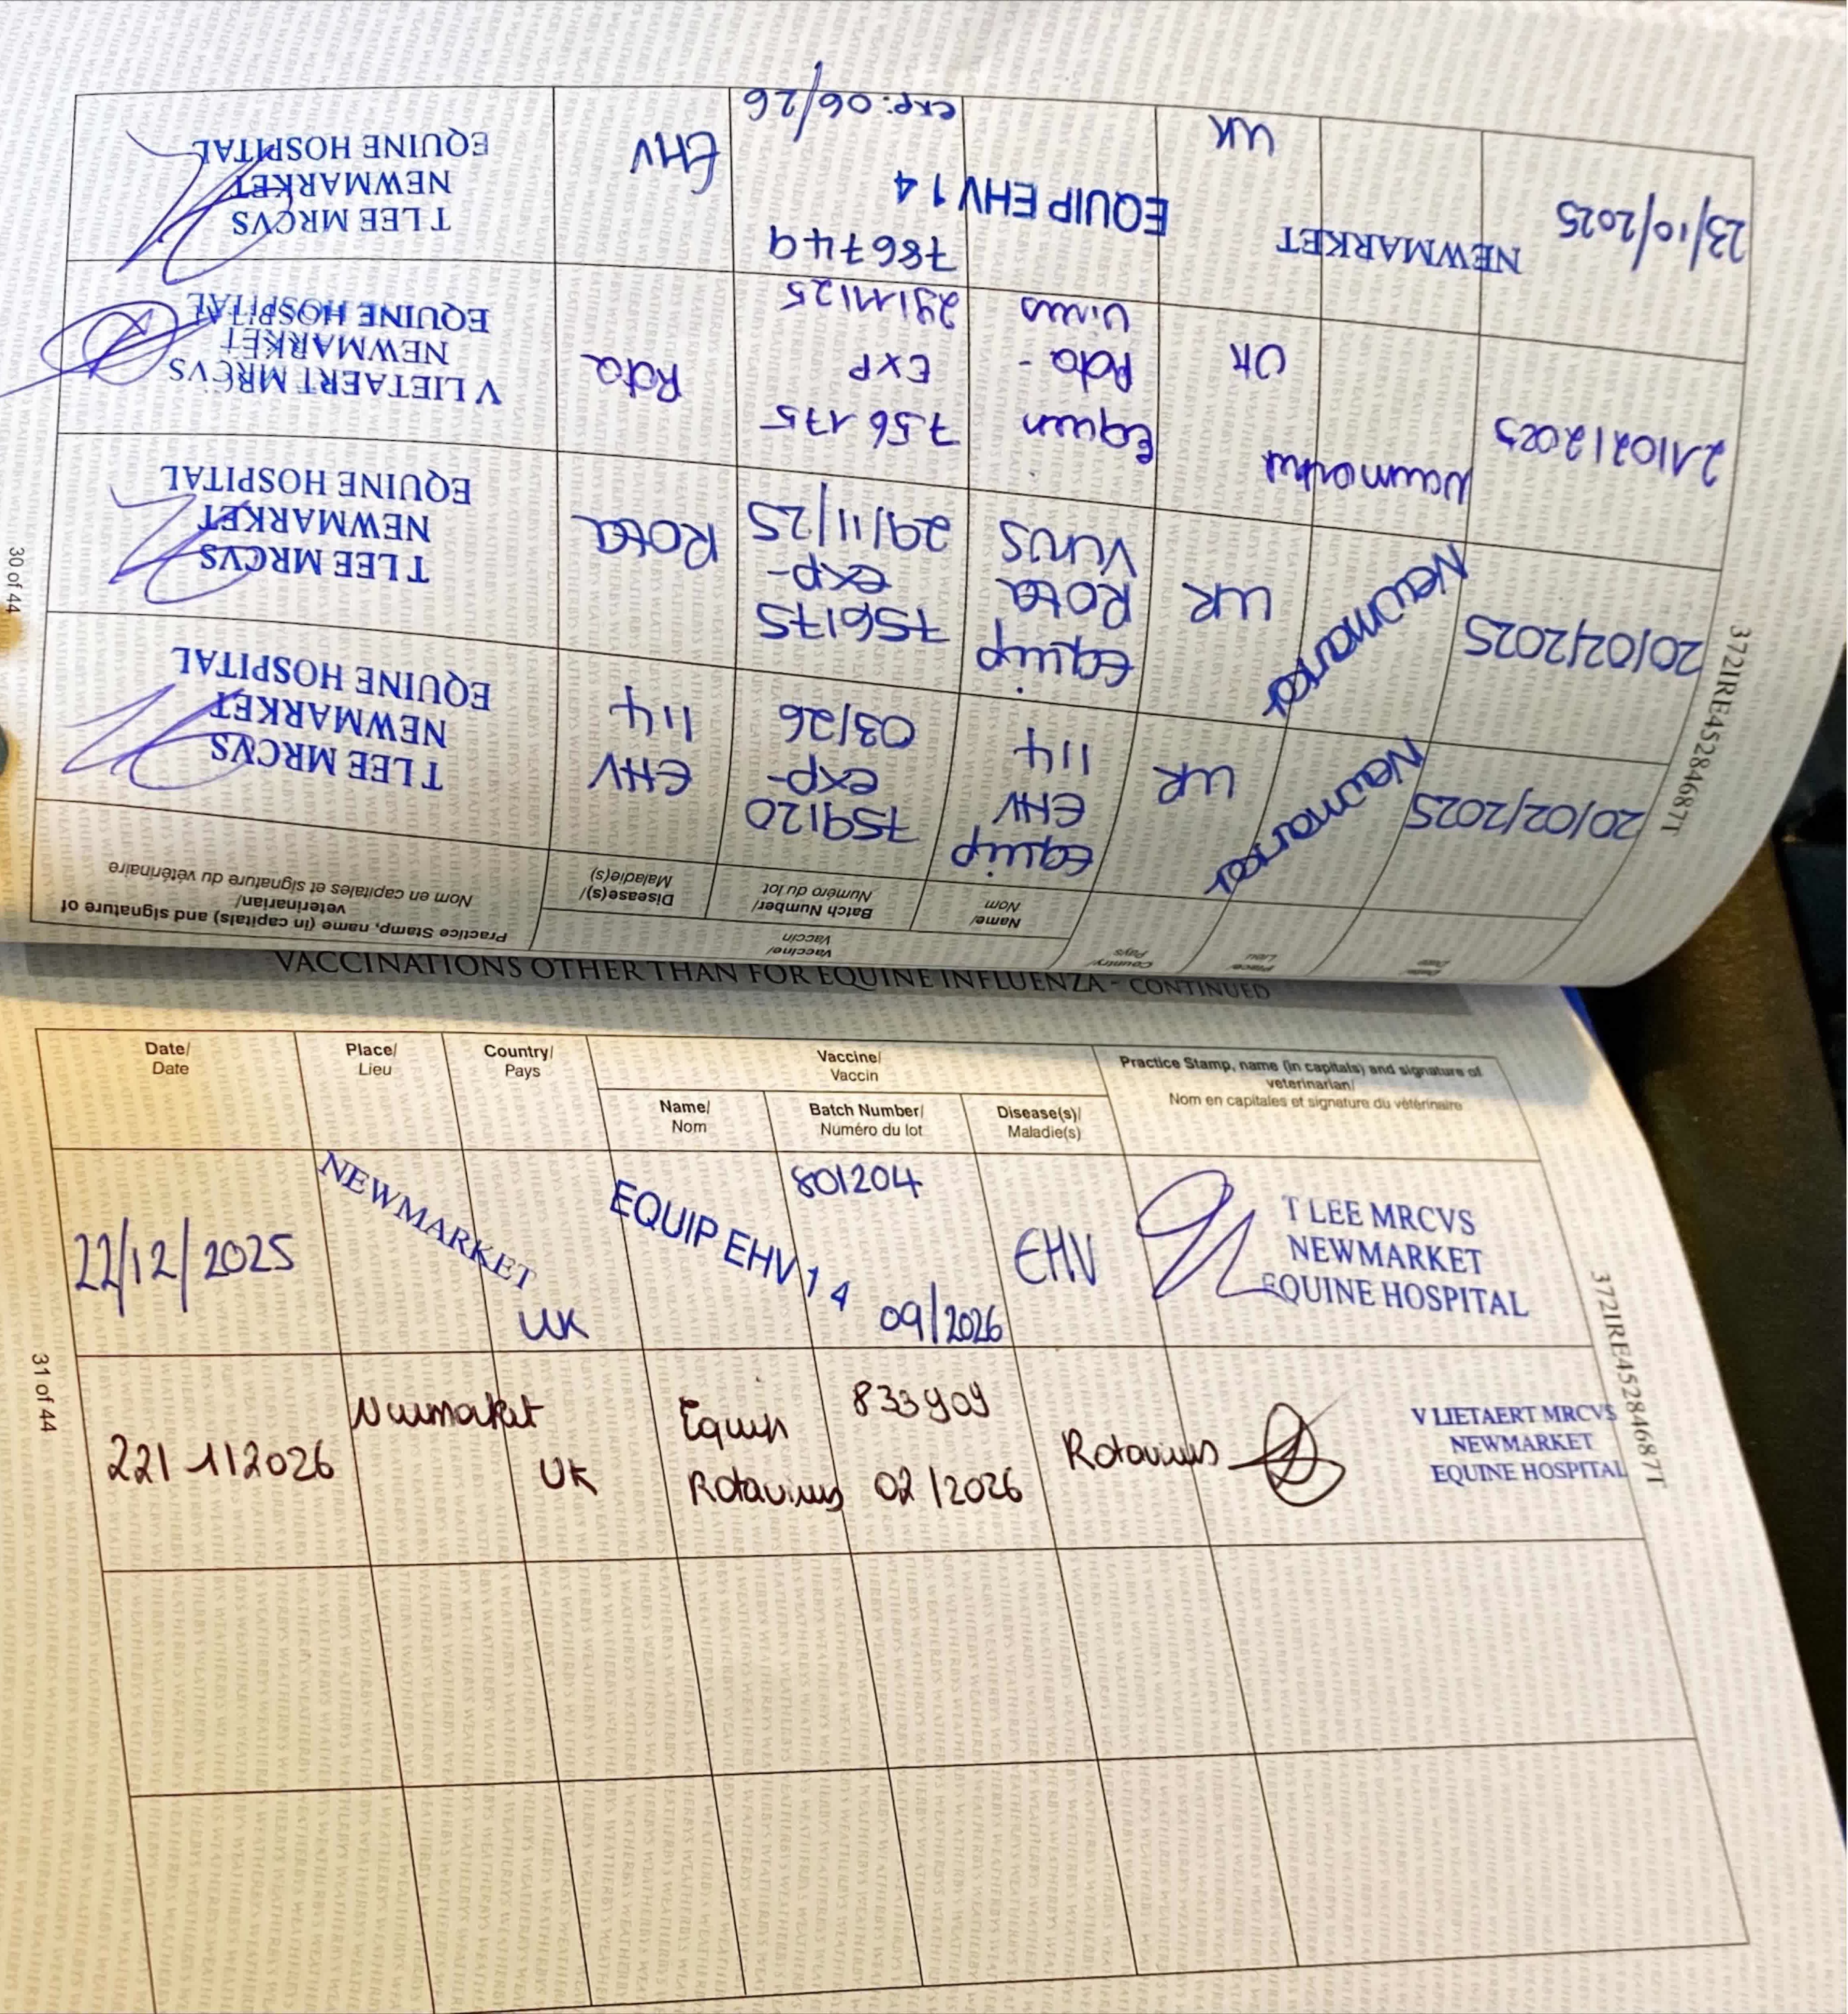 30 of 44
372IRE45284687T
Date/ Place/ Country/ Vaccine/ Practice Stamp, name (in capitals) and signature of
Date Lieu Pays Vaccin veterinarian/
Name/ Batch Number/ Disease(s)/ Nom en capitales et signature du vétérinaire
Nom Numéro du lot Maladie(s)
20/02/2025 Newmarket UK Equip EHV 114 759120 exp- 03/26 EHV 114 T LEE MRCVS
NEWMARKET
EQUINE HOSPITAL
20/02/2025 Newmarket UK Equip Rota Virus 756175 exp- 29/11/25 Rota T LEE MRCVS
NEWMARKET
EQUINE HOSPITAL
21/02/2025 Newmarket UK Equip Rota- Virus 756175 EXP 29/11/25 Rota V LIETAERT MRCVS
NEWMARKET
EQUINE HOSPITAL
23/10/2025 NEWMARKET UK EQUIP EHV 1 4 786749 exp: 06/26 EHV T LEE MRCVS
NEWMARKET
EQUINE HOSPITAL
VACCINATIONS OTHER THAN FOR EQUINE INFLUENZA - CONTINUED
Date/ Place/ Country/ Vaccine/ Practice Stamp, name (in capitals) and signature of
Date Lieu Pays Vaccin veterinarian/
Name/ Batch Number/ Disease(s)/ Nom en capitales et signature du vétérinaire
Nom Numéro du lot Maladie(s)
22/12/2025 NEWMARKET UK EQUIP EHV 1 4 801204 09/2026 EHV T LEE MRCVS
NEWMARKET
EQUINE HOSPITAL
22/1/2026 Newmarket UK Equip Rotavirus 833909 02/2026 Rotavirus V LIETAERT MRCVS
NEWMARKET
EQUINE HOSPITAL
31 of 44
372IRE45284687T